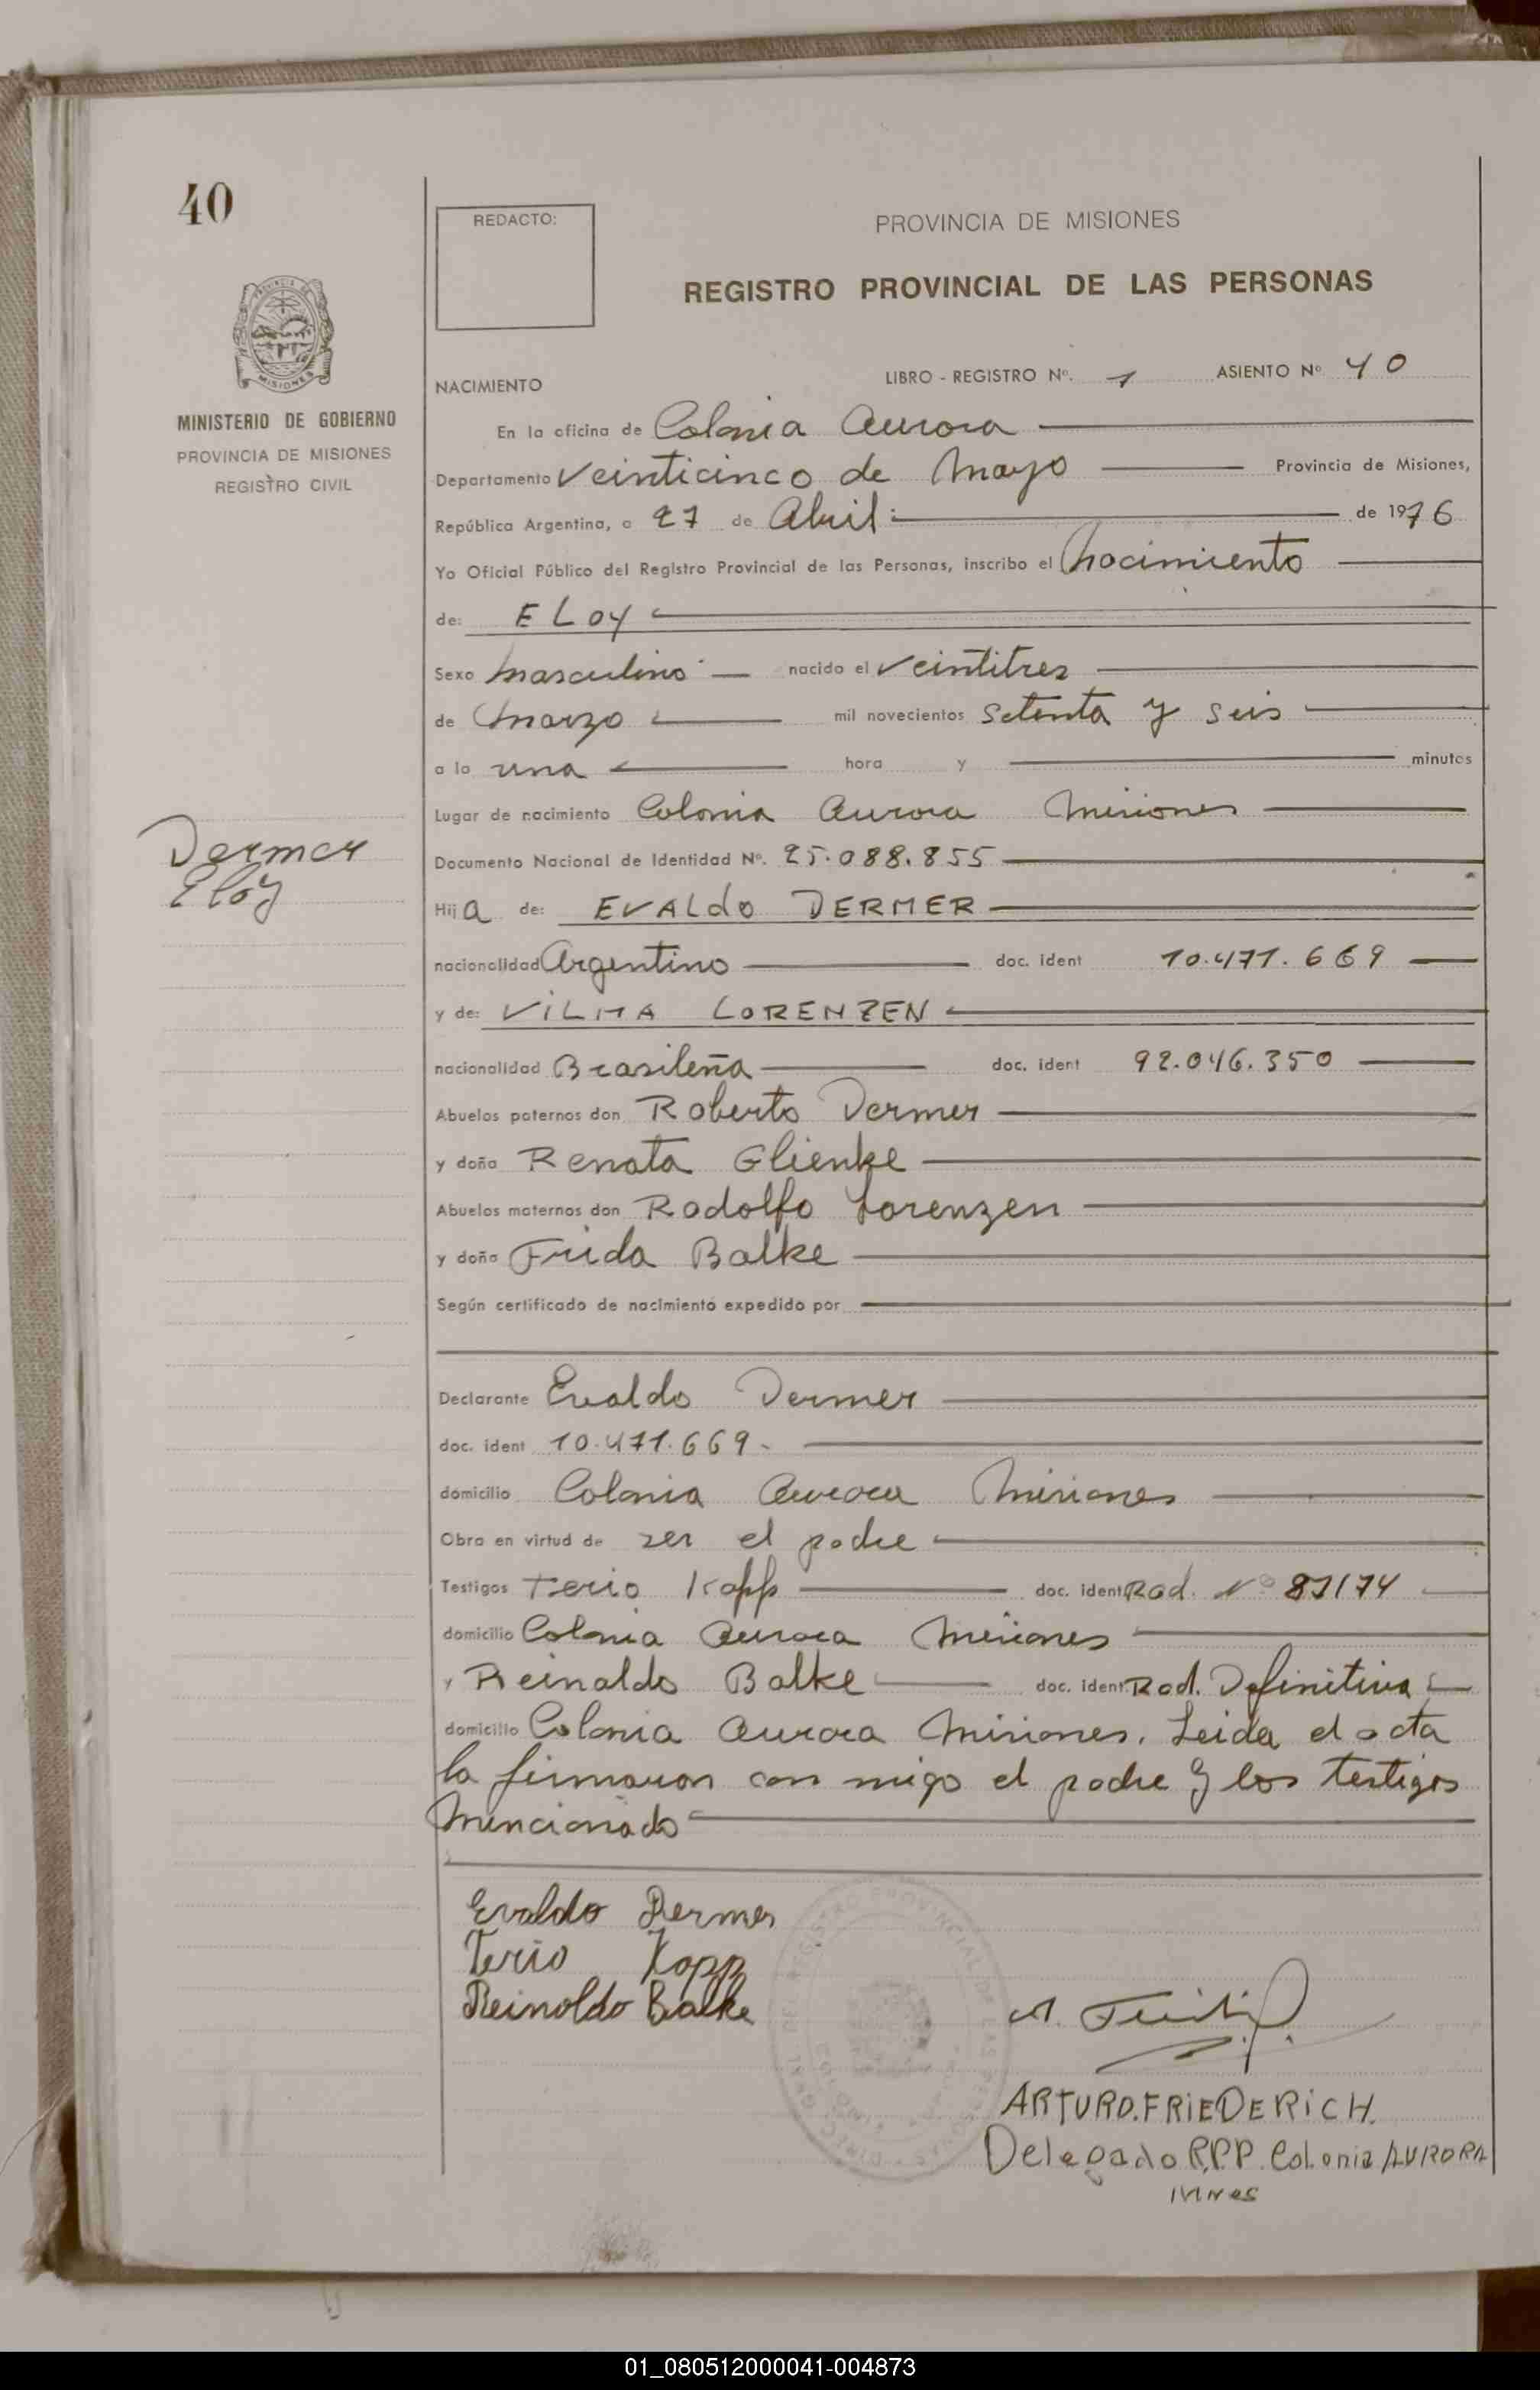 40
REDACTO:
PROVINCIA DE MISIONES
REGISTRO PROVINCIAL DE LAS PERSONAS
MISIONES
MINISTERIO DE GOBIERNO
PROVINCIA DE MISIONES
REGISTRO CIVIL
NACIMIENTO LIBRO - REGISTRO Nº. 1 ASIENTO Nº 40
En la oficina de Colonia Aurora
Departamento Veinticinco de Mayo Provincia de Misiones,
República Argentina, a 27 de Abril de 1976
Yo Oficial Público del Registro Provincial de las Personas, inscribo el Nacimiento
de: ELOY
Sexo Masculino nacido el veintitres
de Marzo mil novecientos setenta y seis
a la una hora y minutos
Lugar de nacimiento Colonia Aurora Misiones
Dermer
Eloy
Documento Nacional de Identidad Nº. 25.088.855
Hija de: EVALDO DERMER
nacionalidad Argentino doc. ident 10.471.669
y de: VILMA LORENZEN
nacionalidad Brasileña doc. ident 92.046.350
Abuelos paternos don Roberto Dermer
y doña Renata Glienke
Abuelos maternos don Rodolfo Lorenzen
y doña Frida Balke
Según certificado de nacimiento expedido por
Declarante Evaldo Dermer
doc. ident 10.471.669.
domicilio Colonia Aurora Misiones
Obra en virtud de ser el padre
Testigos Terio Kopp doc. ident Rad. Nº 87174
domicilio Colonia Aurora Misiones
y Reinaldo Balke doc. ident. Rad. Definitiva
domicilio Colonia Aurora Misiones. Leida el acta
la firmaron con migo el padre y los testigos
Mencionado
Evaldo Dermer
Terio Kopp
Reinoldo Balke
ARTURO.FRIEDERICH.
Delegado R.P.P. Colonia AURORA
Mnes
01_080512000041-004873